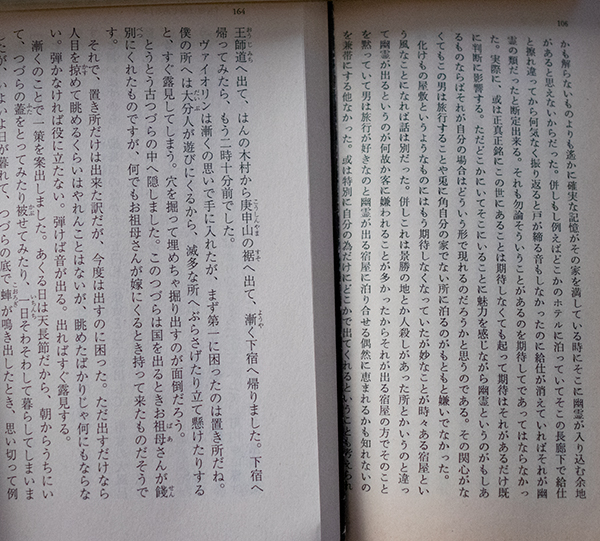 106
かも解らないものよりも遙かに確実な記憶がその家を満している時にそこに幽霊が入り込む余地
があると思えないからだった。併しもし例えばどこかのホテルに泊っていてそこの長廊下で給仕
と擦れ違ってから何気なく振り返ると戸が締る音もしなかったのに給仕が消えていればそれが幽
霊の類だったと断定出来る。それも勿論そういうことがあるのを期待してであってはならなかっ
た。実際に、或は正真正銘にこの世にあることは期待しなくても起って期待はそれがあるだけ既
に判断に影響する。ただどこかにいてそこにいることに魅力を感じながら幽霊というのがもしあ
るものならばそれが自分の場合はどういう形で現れるのだろうかと思うのである。その関心がな
くてもこの男は旅行することや兎に角自分の家でない所に泊るのがもともと嫌いでなかった。
化けもの屋敷というようなものにはもう期待しなくなっていたが妙なことが時々ある宿屋とい
う風なことになれば話は別だった。併しこれは景勝の地とか人殺しがあった所とかいうのと違っ
て幽霊が出るというのが何故か客に嫌われることが多かったからそれが出る宿屋の方でそのこと
を黙っていて男は旅行が好きなのと幽霊が出る宿屋に泊り合せる偶然に恵まれるかも知れないの
を兼帯にする他なかった。或は特別に自分の為だけにどこかで出てくれるということも考えられ
164
王師道へ出て、はんの木村から庚申山の裾へ出て、漸く下宿へ帰りました。下宿へ
帰ってみたら、もう二時十分前でした。
ヴァイオリンは漸くの思いで手に入れたが、まず第一に困ったのは置き所だね。
僕の所へは大分人が遊びにくるから、滅多な所へぶらさげたり立て懸けたりする
と、すぐ露見してしまう。穴を掘って埋めちゃ掘り出すのが面倒だろう。
とうとう古つづらの中へ隠しました。このつづらは国を出るときお祖母さんが餞
別にくれたものですが、何でもお祖母さんが嫁にくるとき持って来たものだそうで
す。
それで、置き所だけは出来た訳だが、今度は出すのに困った。ただ出すだけなら
人目を掠めて眺めるくらいはやれんことはないが、眺めたばかりじゃ何にもならな
い。弾かなければ役に立たない。弾けば音が出る。出ればすぐ露見する。
漸くのことで一策を案出しました。あくる日は天長節だから、朝からうちにい
て、つづらの蓋をとってみたり被せてみたり、一日そわそわして暮らしてしまいま
したが、いよいよ日が暮れて、つづらの底で蛼が鳴き出したとき、思い切って例